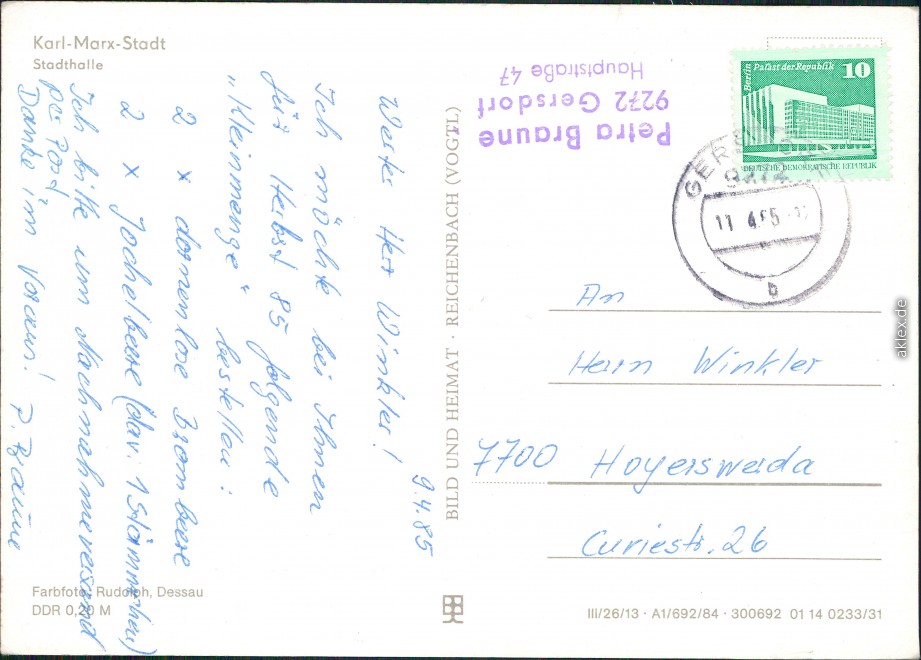 Karl-Marx-Stadt
Stadthalle
9.4.85
Werter Herr Winkler!
Ich möchte bei Ihnen
für Herbst 85 folgende
"Kleinmenge" bestellen:
2 x dornenlose Brombeere
2 x Jochelbeere (dav. 1 Stämmchen)
Ich bitte um Nachnahmeversand
per Post
Danke im Voraus! P. Braune
Farbfoto: Rudolph, Dessau
DDR 0,20 M
BILD UND HEIMAT · REICHENBACH (VOGTL)
Petra Braune
9272 Gersdorf
Hauptstraße 47
Berlin Palast der Republik 10
DEUTSCHE DEMOKRATISCHE REPUBLIK
9272
11.4.85
b
An
Herrn Winkler
7700 Hoyerswerda
Curiestr. 26
III/26/13 · A1/692/84 · 300692 01 14 0233/31
aklex.de